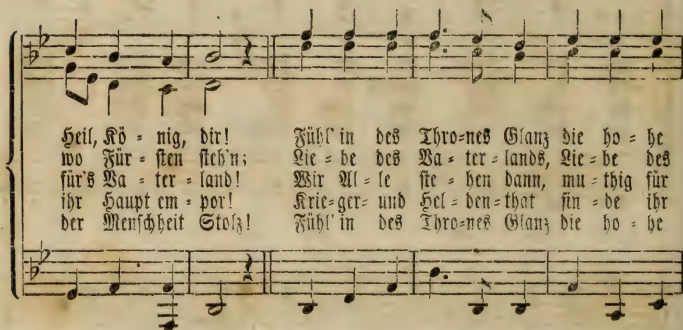 Heil, Kö - nig, dir! Fühl' in des Thro-nes Glanz die ho - he
wo Für - sten steh'n; Lie - be des Va - ter - lands, Lie - be des
für's Va - ter - land! Wir Al - le ste - hen dann, mu - thig für
ihr Haupt em - por! Krie - ger- und Hel - den - that fin - de ihr
der Menschheit Stolz! Fühl' in des Thro-nes Glanz die ho - he